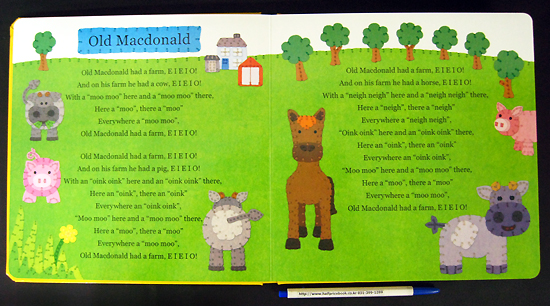 Old Macdonald
Old Macdonald had a farm, E I E I O!
And on his farm he had a cow, E I E I O!
With a "moo moo" here and a "moo moo" there,
Here a "moo", there a "moo"
Everywhere a "moo moo",
Old Macdonald had a farm, E I E I O!
Old Macdonald had a farm, E I E I O!
And on his farm he had a pig, E I E I O!
With an "oink oink" here and an "oink oink" there,
Here an "oink", there an "oink"
Everywhere an "oink oink",
"Moo moo" here and a "moo moo" there,
Here a "moo", there a "moo"
Everywhere a "moo moo",
Old Macdonald had a farm, E I E I O!
Old Macdonald had a farm, E I E I O!
And on his farm he had a horse, E I E I O!
With a "neigh neigh" here and a "neigh neigh" there,
Here a "neigh", there a "neigh"
Everywhere a "neigh neigh",
"Oink oink" here and an "oink oink" there,
Here an "oink", there an "oink"
Everywhere an "oink oink",
"Moo moo" here and a "moo moo" there,
Here a "moo", there a "moo"
Everywhere a "moo moo",
Old Macdonald had a farm, E I E I O!